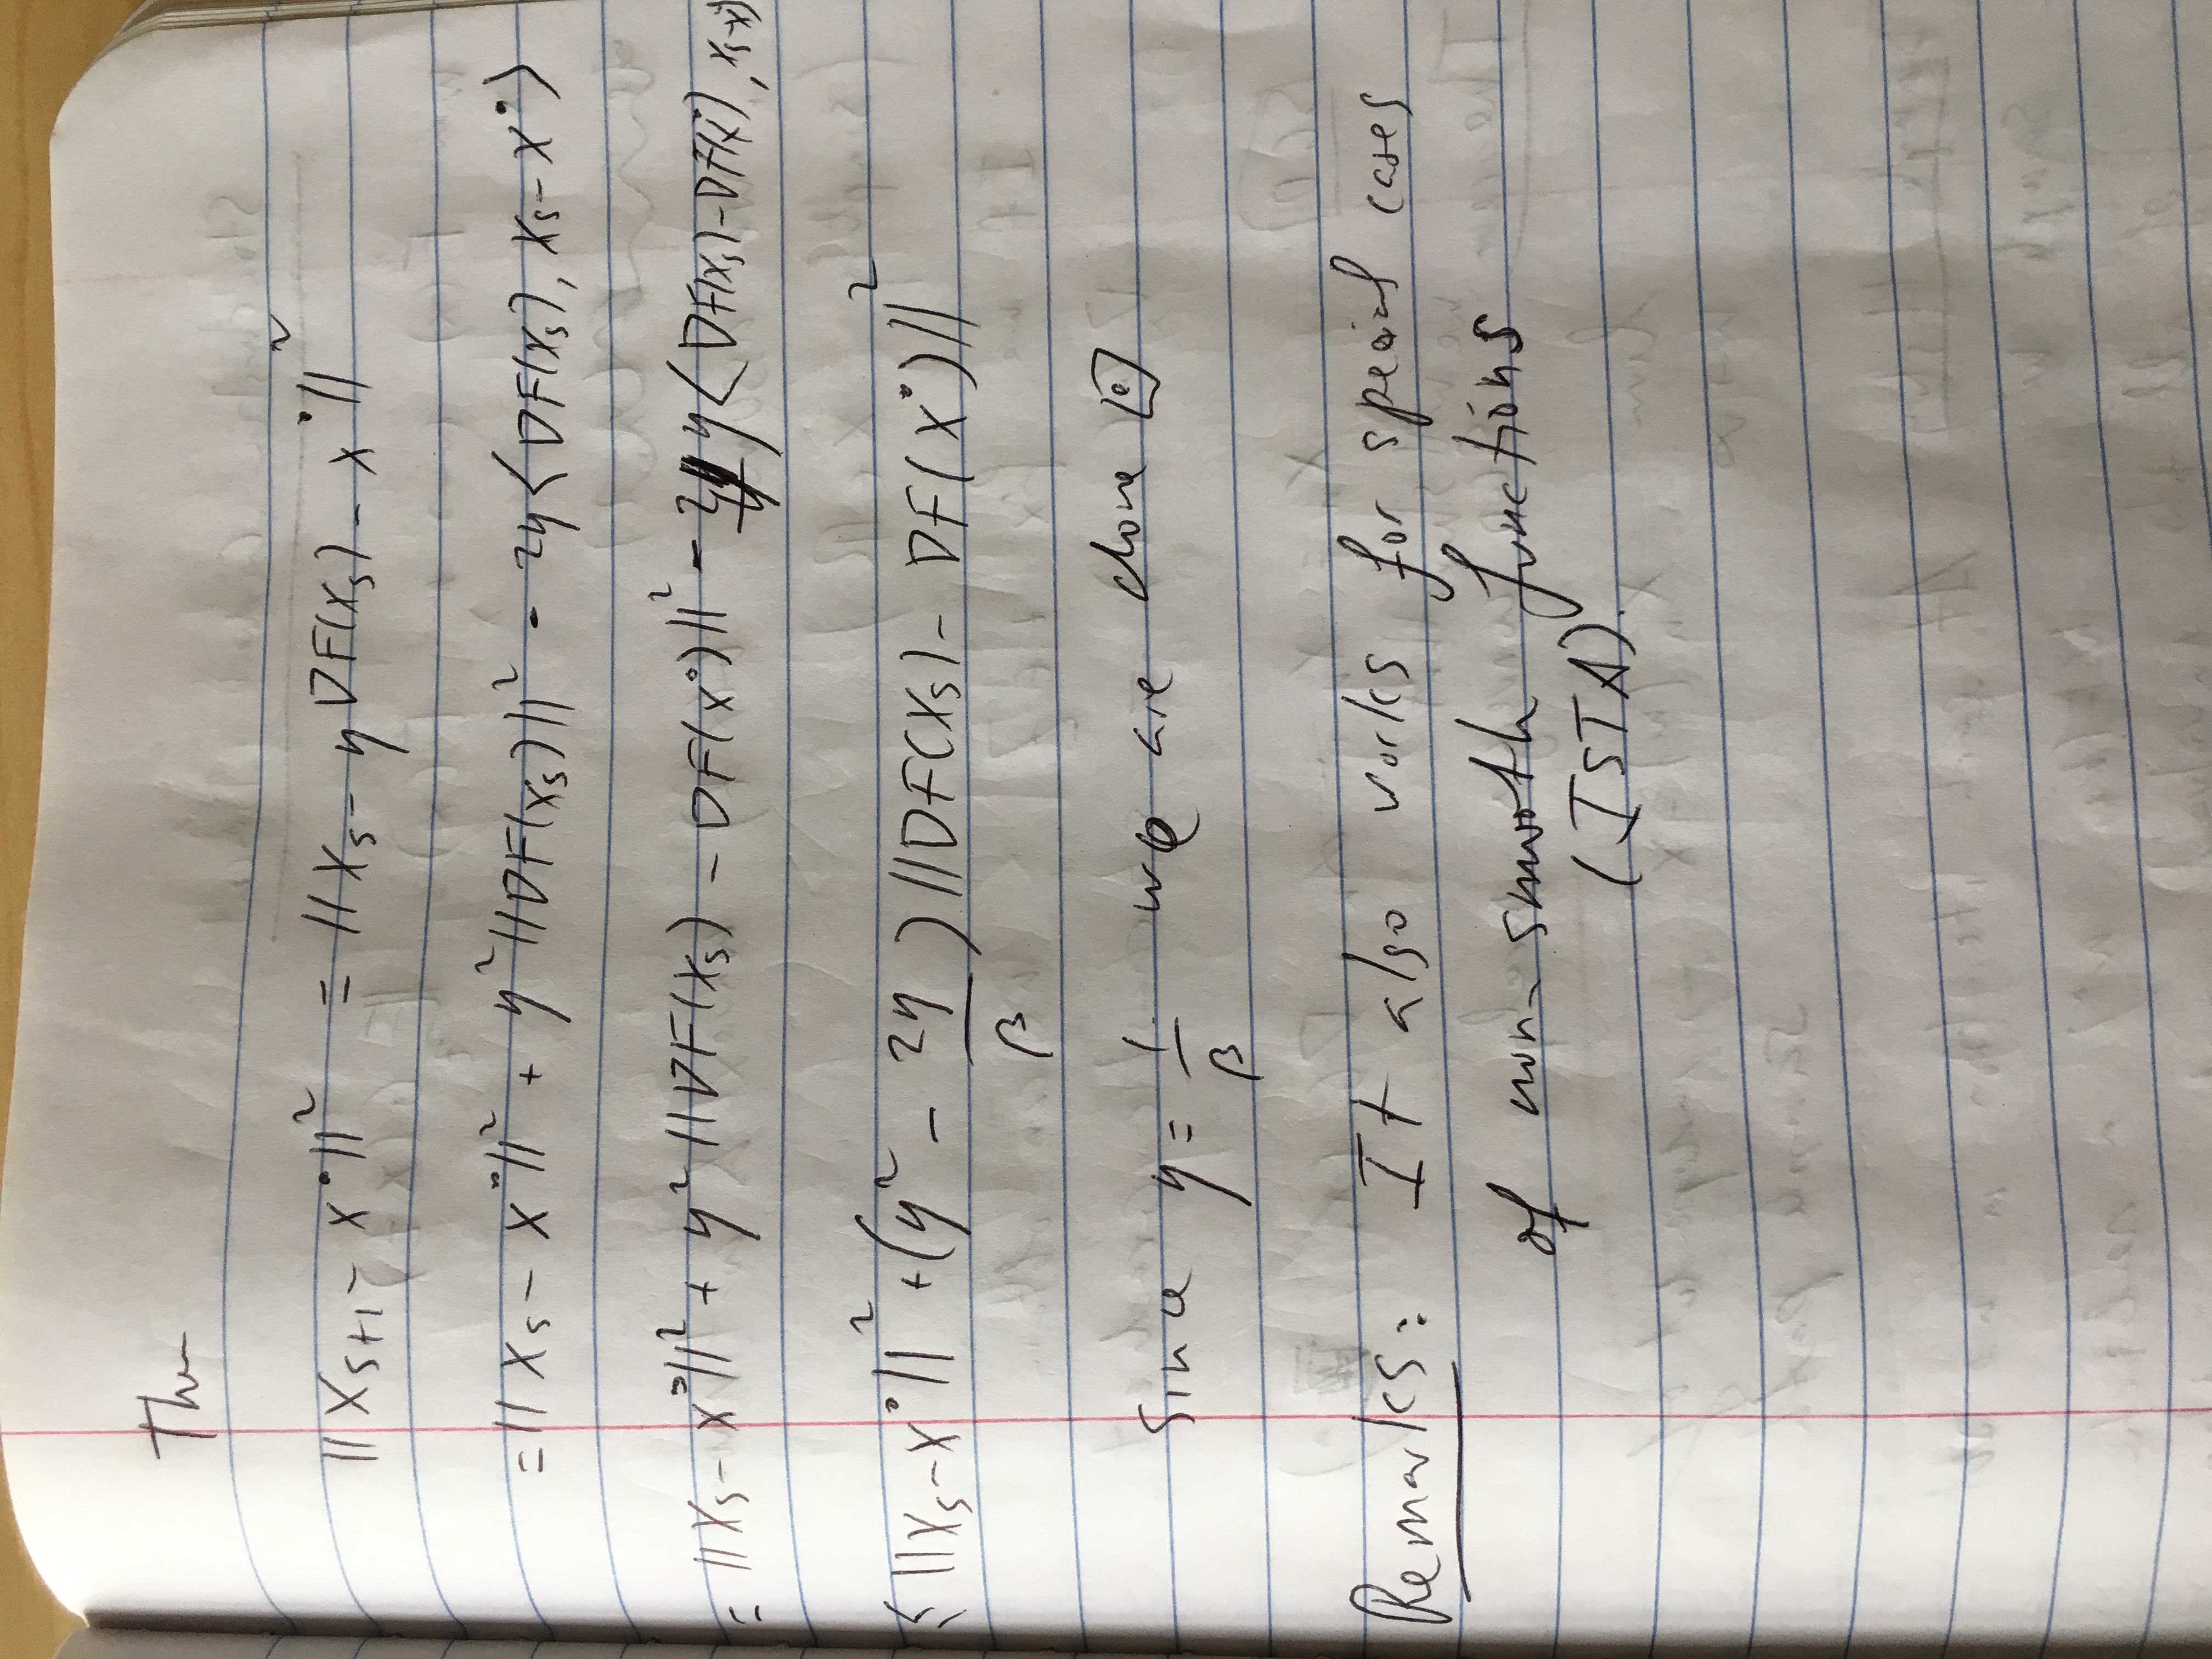 Then
||x_{s+1} - x°||² = ||x_s - η∇F(x_s) - x°||²
= ||x_s - x°||² + η²||∇F(x_s)||² - 2η⟨∇F(x_s), x_s - x°⟩
= ||x_s - x°||² + η²||∇F(x_s) - ∇F(x°)||² - 2η⟨∇F(x_s) - ∇F(x°), x_s - x°⟩
≤ ||x_s - x°||² + (η² - 2η/β)||∇F(x_s) - ∇F(x°)||²
Since η = 1/β we are done ⊡
Remarks: It also works for special cases
of non-smooth functions
(ISTA).